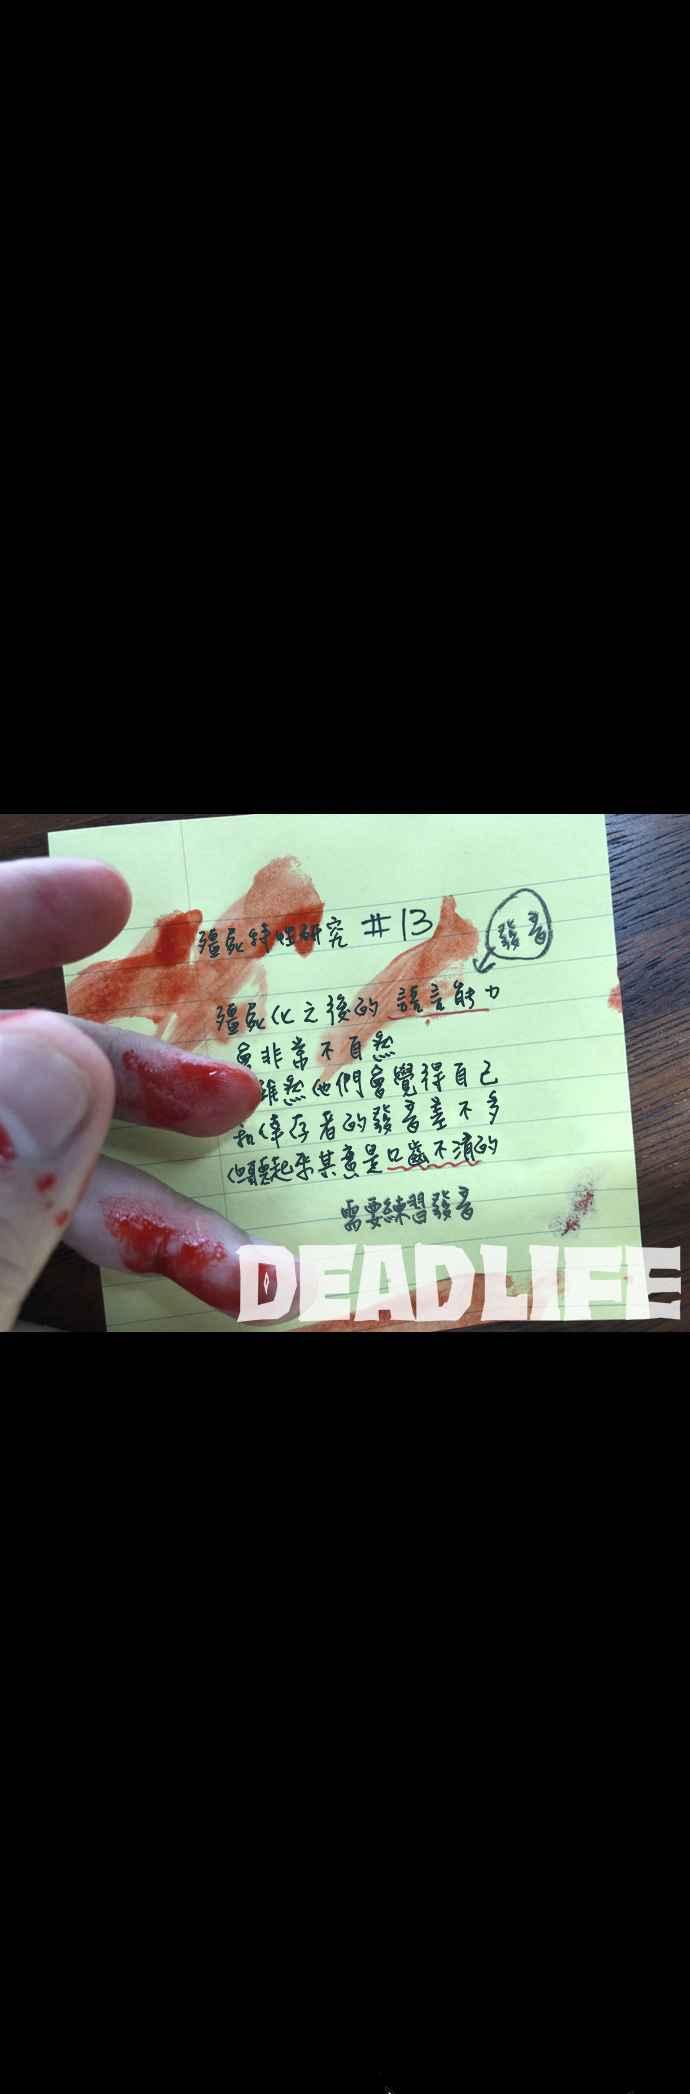 殭屍特性研究 #13
發音
殭屍化之後的 語言能力
會非常不自然
雖然他們會覺得自己
和倖存者的發音差不多
但聽起來其實是口齒不清的
需要練習發音
DEADLIFE